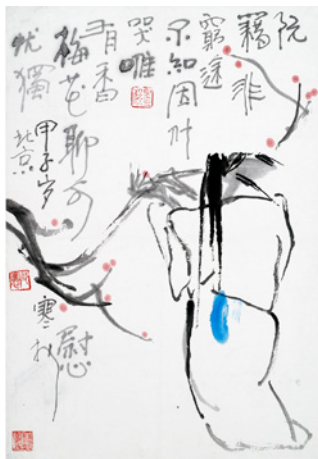 阮
籍非
窮途
不知因
哭唯
有香
梅花聊可慰
獨
甲子岁
北京
寒